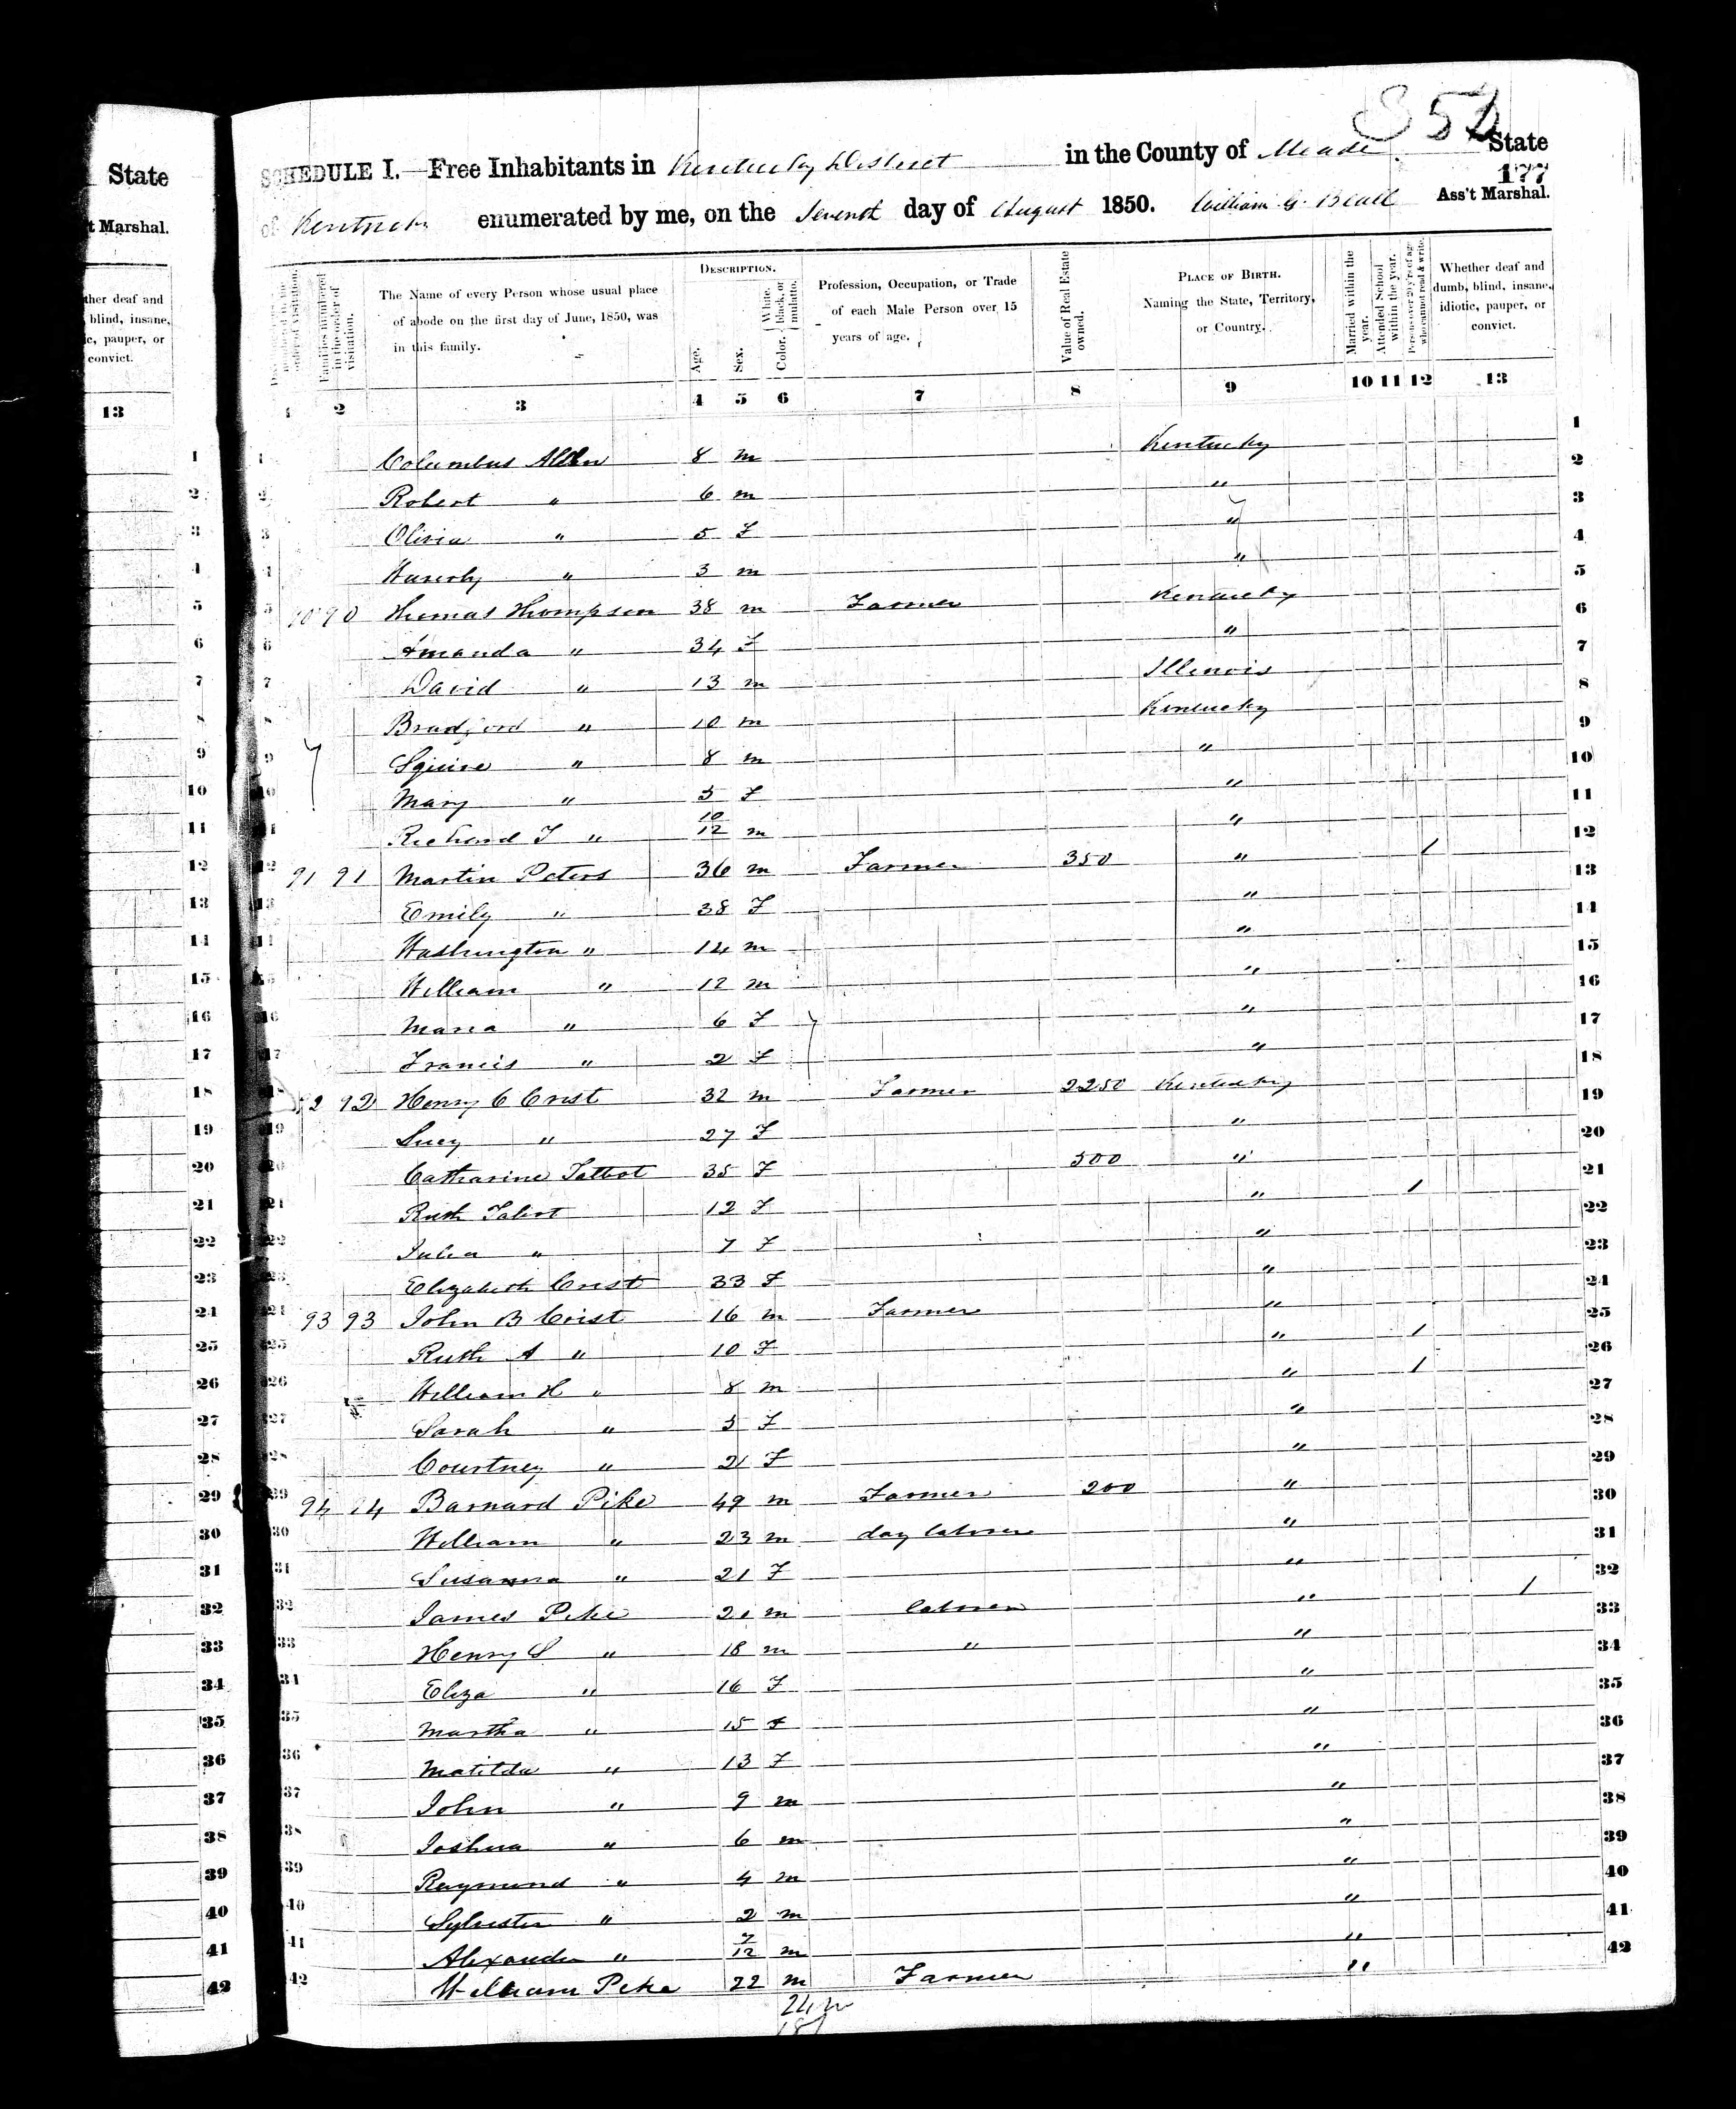 352
State
177
SCHEDULE I.—Free Inhabitants in Kentucky District in the County of Meade State
of Kentucky enumerated by me, on the Seventh day of August 1850. William G. Beall Ass't Marshal.
t Marshal.
The Name of every Person whose usual place of abode on the first day of June, 1850, was in this family.
Families numbered in the order of visitation.
DESCRIPTION.
Age.
Sex.
Color. White, black, or mulatto.
Profession, Occupation, or Trade of each Male Person over 15 years of age.
Value of Real Estate owned.
PLACE OF BIRTH. Naming the State, Territory, or Country.
Married within the year.
Attended School within the year.
Persons over 20 y'rs of age who cannot read & write.
Whether deaf and dumb, blind, insane, idiotic, pauper, or convict.
ther deaf and blind, insane, ic, pauper, or convict.
13
1 2 3 4 5 6 7 8 9 10 11 12 13
1 Columbus Allen 8 m Kentucky
2 Robert " 6 m "
3 Olivia " 5 F "
4 " 3 m "
5 90 90 Thomas Thompson 38 m Farmer Kentucky
6 Amanda " 34 F "
7 David " 13 m Illinois
8 Bradford " 10 m Kentucky
9 Squire " 8 m "
10 Mary " 5 F "
11 Richard T " 10/12 m "
12 91 91 Martin Peters 36 m Farmer 350 " 1
13 Emily " 38 F "
14 Washington " 14 m "
15 William " 12 m "
16 Maria " 6 F "
17 Francis " 2 F "
18 92 92 Henry C Crist 32 m Farmer 2250 Kentucky
19 Lucy " 27 F "
20 Catharine Talbot 35 F 500 "
21 Ruth Talbot 12 F " 1
22 Julia " 7 F "
23 Elizabeth Crist 33 F "
24 93 93 John B Crist 16 m Farmer "
25 Ruth A " 10 F " 1
26 William H " 8 m " 1
27 Sarah " 5 F "
28 Courtney " 21 F "
29 94 94 Barnard Pike 49 m Farmer 200 "
30 William " 23 m day laborer "
31 Susanna " 21 F "
32 James Pike 21 m laborer " 1
33 Henry S " 18 m " "
34 Eliza " 16 F "
35 Martha " 15 F "
36 Matilda " 13 F "
37 John " 9 m "
38 Joshua " 6 m "
39 Raymond " 4 m "
40 Sylvester " 2 m "
41 Alexander " 2/12 m "
42 William Pike 22 m Farmer "
24 m
18 f